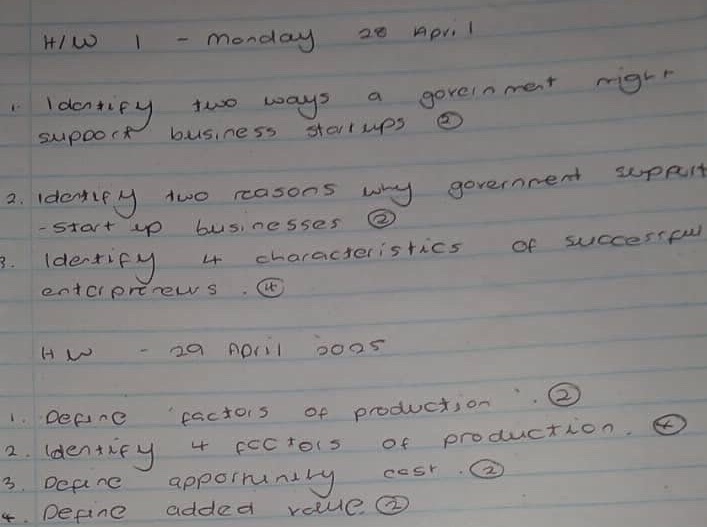 H/W 1 - Monday 28 April
1. Identify two ways a government might
support business startups ②
2. Identify two reasons why government support
- start up businesses ②
3. Identify 4 characteristics of successful
entrpreneurs . ④
HW - 29 April 2025
1. Define 'factors of production'. ②
2. Identify 4 factors of production. ④
3. Define apportunity cost . ②
4. Define added value. ②